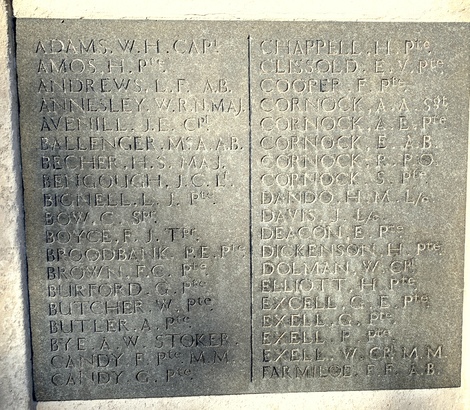 ADAMS, W. H. CAPt.
AMOS, H. Pte.
ANDREWS, L. F. A.B.
ANNESLEY, W.R.N. MAJ.
AVENILL, J. E. CPl.
BALLENGER, M.S.A. A.B.
BECHER, H. S. MAJ.
BENGOUGH, J. C. Lt.
BIGNELL, L. J. Pte.
BOW, C. SPr.
BOYCE, F. J. TPr.
BROODBANK, P. E. Pte
BROWN, F. G. Pte.
BURFORD, G. Pte.
BUTCHER, W. Pte.
BUTLER, A. Pte.
BYE, A. W. STOKER.
CANDY, F. Pte M.M.
CANDY, G. Pte.
CHAPPELL, H. Pte.
CLISSOLD, E. V. Pte.
COOPER, F. Pte.
CORNOCK, A. A. Sgt
CORNOCK, A. E. Pte
CORNOCK, E. A.B.
CORNOCK, R. P.O.
CORNOCK, S. Pte.
DANDO, H. M. L/c.
DAVIS, J. L/c.
DEACON, E. Pte.
DICKENSON, H. Pte.
DOLMAN, W. CPl.
ELLIOTT, H. Pte.
EXCELL, G. E. Pte.
EXELL, G. Pte.
EXELL, P. Pte.
EXELL, W. CPl. M.M.
FARMILOE, F. F. A.B.